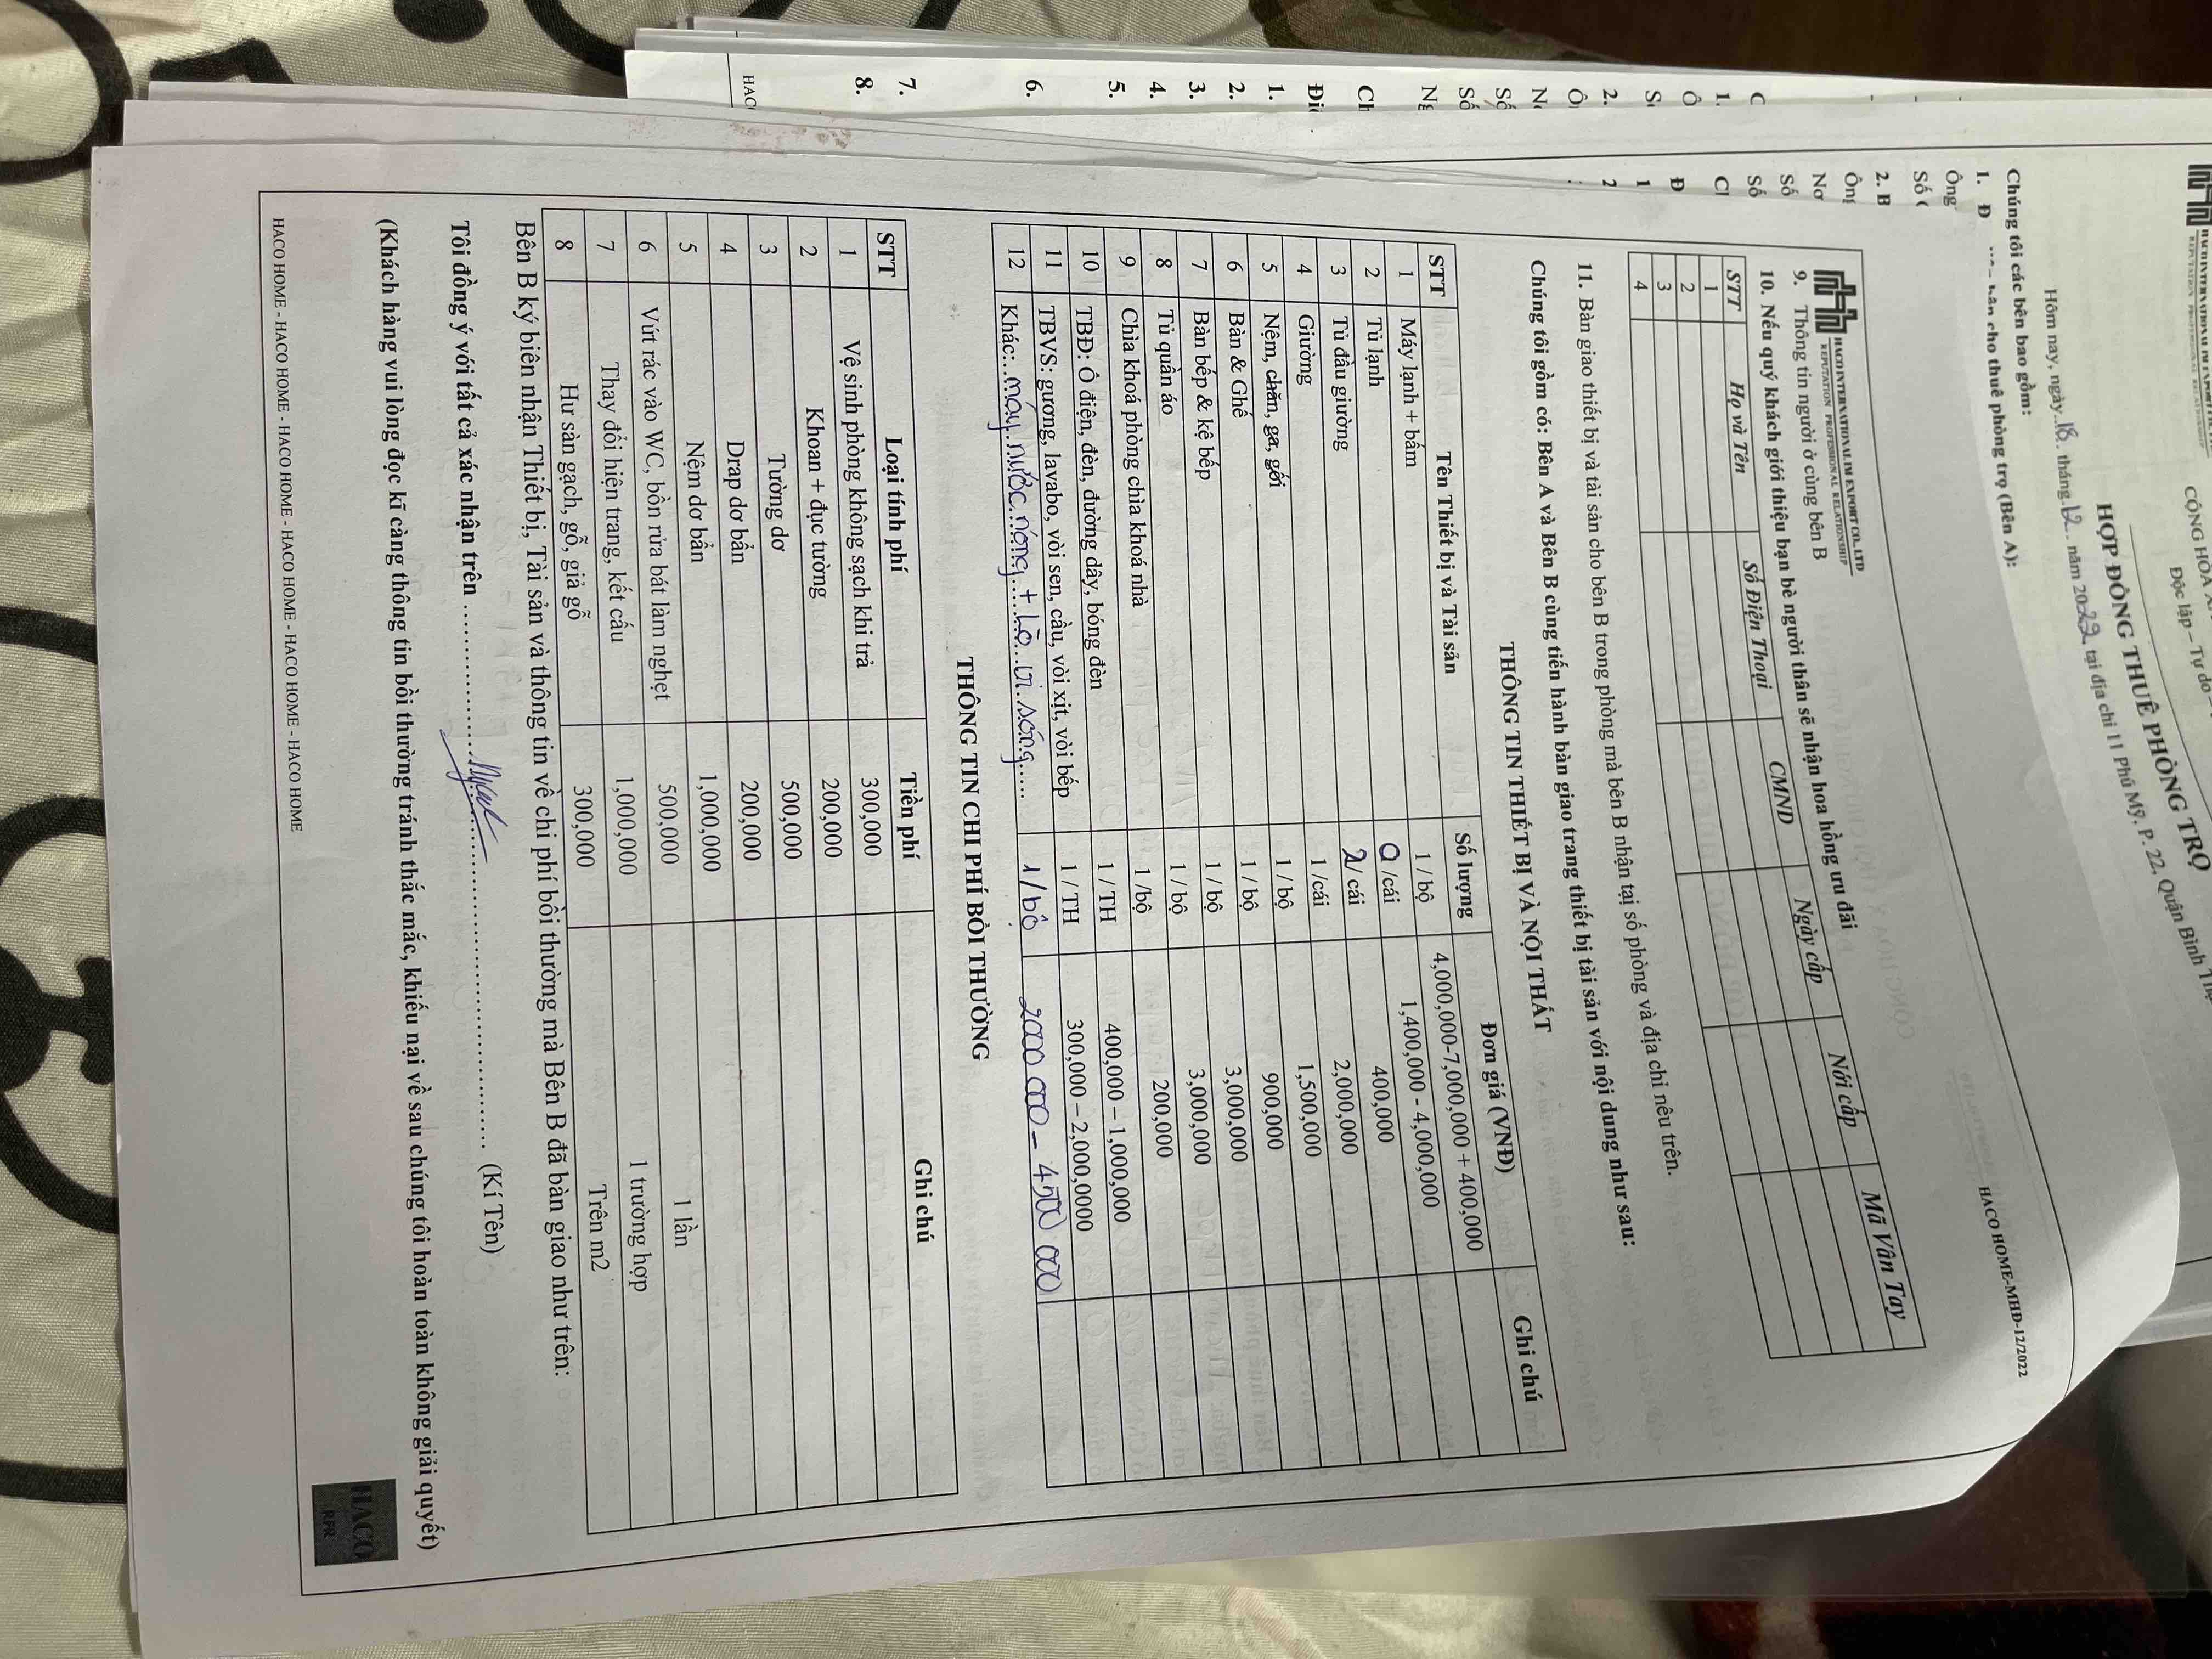 CỘNG HÒA X
Độc lập – Tự do –
HỢP ĐỒNG THUÊ PHÒNG TRỌ
Hôm nay, ngày..18.. tháng.12.. năm 2022 tại địa chỉ 11 Phú Mỹ, P. 22, Quận Bình
Chúng tôi các bên bao gồm:
1. Đ bên cho thuê phòng trọ (Bên A):
Ông
Số
2. B
Ông
Nơ
Số
Số
HACO HOME-MHĐ-12/2022
HACO INTERNATIONAL IM EXPORT CO.,LTD
REPUTATION PROFESSIONAL RELATIONSHIP
9. Thông tin người ở cùng bên B
10. Nếu quý khách giới thiệu bạn bè người thân sẽ nhận hoa hồng ưu đãi
STT Họ và Tên Số Điện Thoại CMND Ngày cấp Nơi cấp Mã Vân Tay
1
2
3
4
11. Bàn giao thiết bị và tài sản cho bên B trong phòng mà bên B nhận tại số phòng và địa chỉ nêu trên.
Chúng tôi gồm có: Bên A và Bên B cùng tiến hành bàn giao trang thiết bị tài sản với nội dung như sau:
THÔNG TIN THIẾT BỊ VÀ NỘI THẤT
STT Tên Thiết bị và Tài sản Số lượng Đơn giá (VNĐ) Ghi chú
1 Máy lạnh + bấm 1 / bộ 4,000,000-7,000,000 + 400,000
2 Tủ lạnh 0 /cái 1,400,000 - 4,000,000
3 Tủ đầu giường 2/ cái 400,000
4 Giường 1 /cái 2,000,000
5 Nệm, chăn, ga, gối 1 / bộ 1,500,000
6 Bàn & Ghế 1 / bộ 900,000
7 Bàn bếp & kệ bếp 1 / bộ 3,000,000
8 Tủ quần áo 1 / bộ 3,000,000
9 Chìa khoá phòng chìa khoá nhà 1 /bộ 200,000
10 TBĐ: Ổ điện, đèn, đường dây, bóng đèn 1 / TH 400,000 – 1,000,000
11 TBVS: gương, lavabo, vòi sen, cầu, vòi xịt, vòi bếp 1 / TH 300,000 – 2,000,0000
12 Khác:..máy nước nóng + Lò vi sóng...... 1/bộ 2000 000 – 4500 000
THÔNG TIN CHI PHÍ BỒI THƯỜNG
STT Loại tính phí Tiền phí Ghi chú
1 Vệ sinh phòng không sạch khi trả 300,000
2 Khoan + đục tường 200,000
3 Tường dơ 500,000
4 Drap dơ bẩn 200,000
5 Nệm dơ bẩn 1,000,000
6 Vứt rác vào WC, bồn rửa bát làm nghẹt 500,000 1 lần
7 Thay đổi hiện trang, kết cấu 1,000,000 1 trường hợp
8 Hư sàn gạch, gỗ, giả gỗ 300,000 Trên m2
Bên B ký biên nhận Thiết bị, Tài sản và thông tin về chi phí bồi thường mà Bên B đã bàn giao như trên:
Tôi đồng ý với tất cả xác nhận trên ........................................................ (Kí Tên)
(Khách hàng vui lòng đọc kĩ càng thông tin bồi thường tránh thắc mắc, khiếu nại về sau chúng tôi hoàn toàn không giải quyết)
HACO HOME - HACO HOME - HACO HOME - HACO HOME - HACO HOME - HACO HOME
HACO
RPR